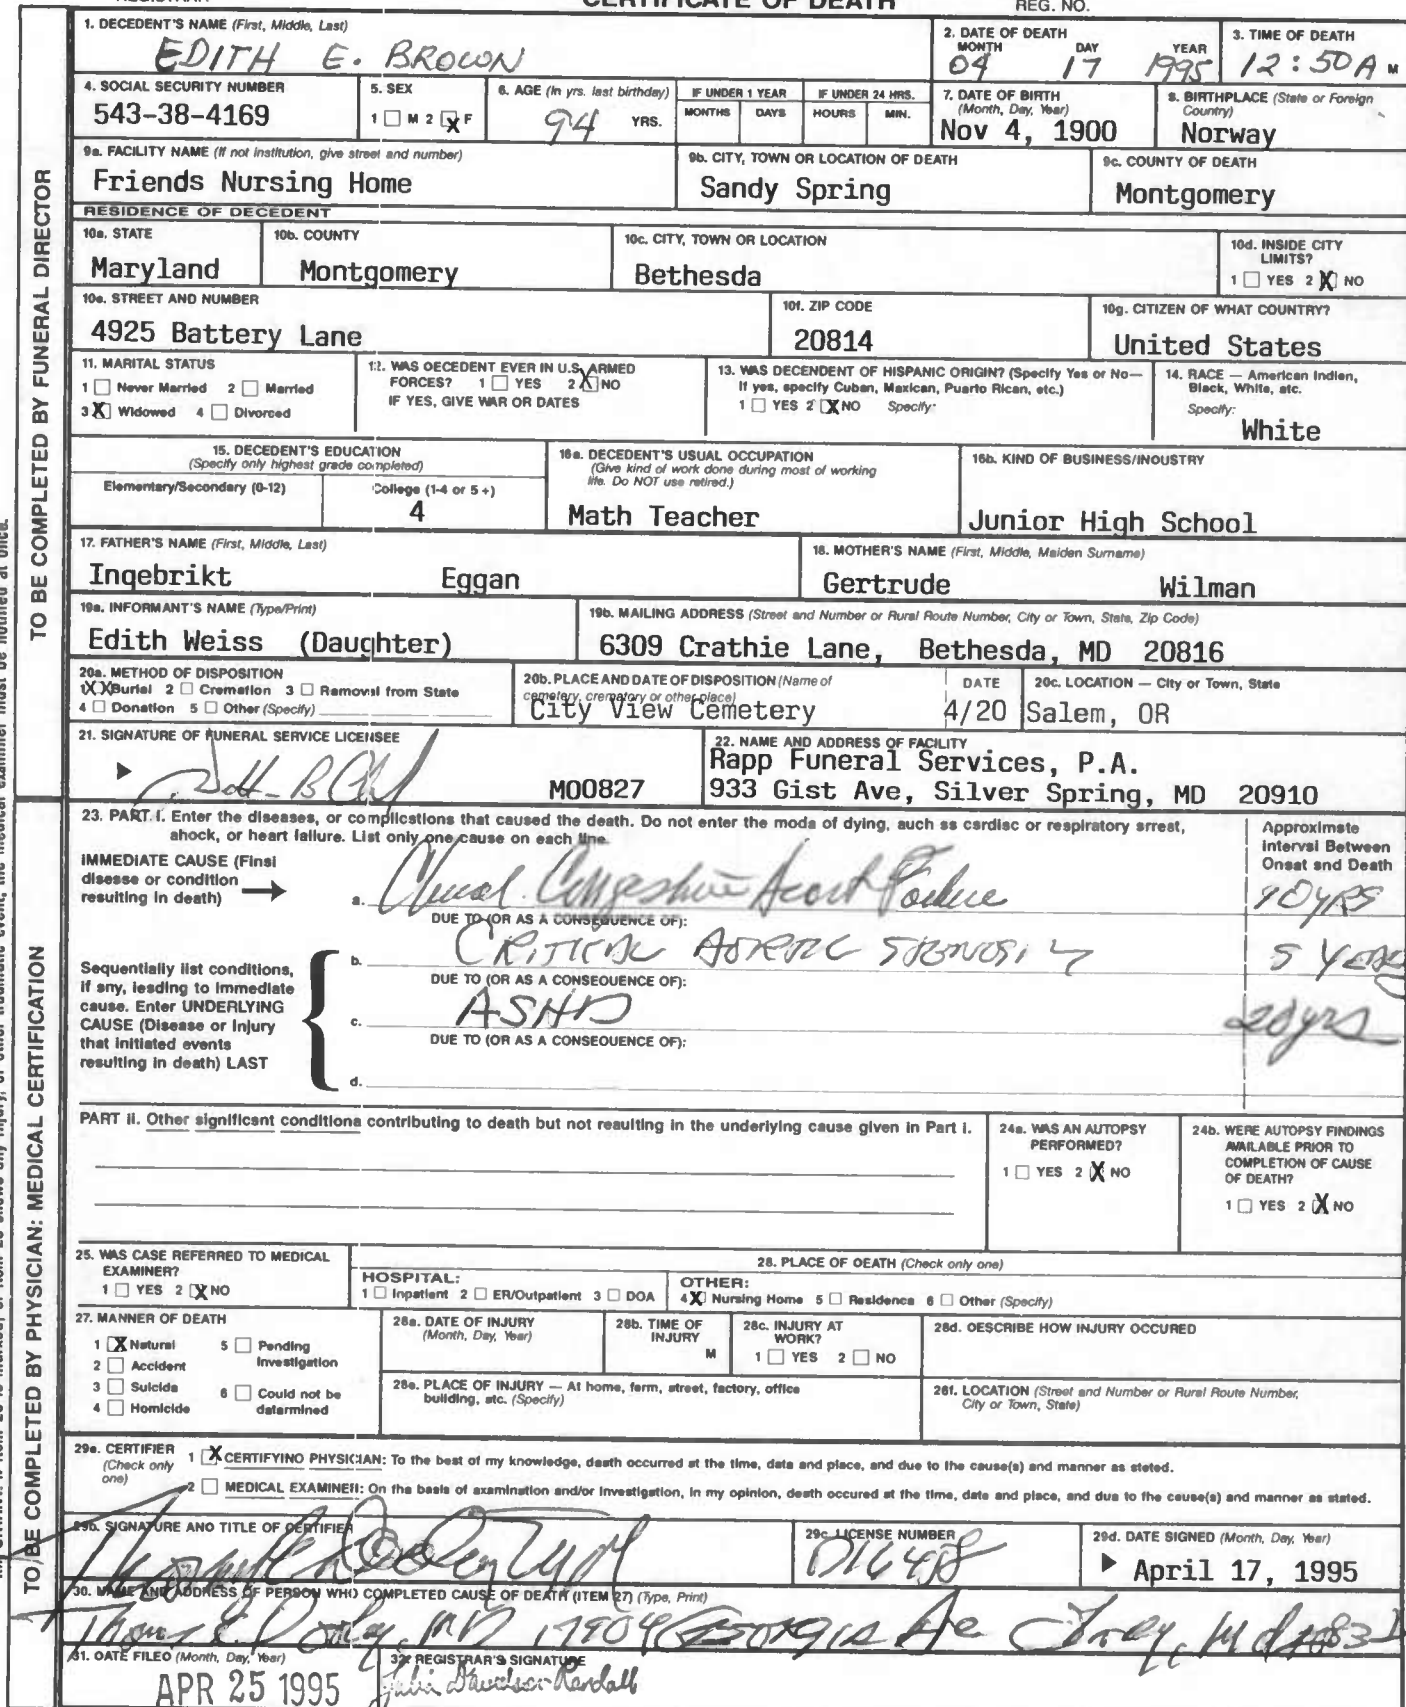 CERTIFICATE OF DEATH
REG. NO.
1. DECEDENT'S NAME (First, Middle, Last)
EDITH E. BROWN
2. DATE OF DEATH
MONTH DAY YEAR
04 17 1995
3. TIME OF DEATH
12:50 A M
4. SOCIAL SECURITY NUMBER
543-38-4169
5. SEX
1 ☐ M 2 ☒ F
6. AGE (In yrs. last birthday)
94 YRS.
IF UNDER 1 YEAR
MONTHS DAYS
IF UNDER 24 HRS.
HOURS MIN.
7. DATE OF BIRTH
(Month, Day, Year)
Nov 4, 1900
8. BIRTHPLACE (State or Foreign
Country)
Norway
9a. FACILITY NAME (If not institution, give street and number)
Friends Nursing Home
9b. CITY, TOWN OR LOCATION OF DEATH
Sandy Spring
9c. COUNTY OF DEATH
Montgomery
RESIDENCE OF DECEDENT
10a. STATE
Maryland
10b. COUNTY
Montgomery
10c. CITY, TOWN OR LOCATION
Bethesda
10d. INSIDE CITY
LIMITS?
1 ☐ YES 2 ☒ NO
10e. STREET AND NUMBER
4925 Battery Lane
10f. ZIP CODE
20814
10g. CITIZEN OF WHAT COUNTRY?
United States
11. MARITAL STATUS
1 ☐ Never Married 2 ☐ Married
3 ☒ Widowed 4 ☐ Divorced
12. WAS DECEDENT EVER IN U.S. ARMED
FORCES? 1 ☐ YES 2 ☒ NO
IF YES, GIVE WAR OR DATES
13. WAS DECENDENT OF HISPANIC ORIGIN? (Specify Yes or No—
If yes, specify Cuban, Mexican, Puerto Rican, etc.)
1 ☐ YES 2 ☒ NO Specify:
14. RACE — American Indien,
Black, White, etc.
Specify:
White
15. DECEDENT'S EDUCATION
(Specify only highest grade completed)
Elementary/Secondary (0-12)
College (1-4 or 5 +)
4
16a. DECEDENT'S USUAL OCCUPATION
(Give kind of work done during most of working
life. Do NOT use retired.)
Math Teacher
16b. KIND OF BUSINESS/INDUSTRY
Junior High School
17. FATHER'S NAME (First, Middle, Last)
Ingebrikt Eggan
18. MOTHER'S NAME (First, Middle, Maiden Surname)
Gertrude Wilman
19a. INFORMANT'S NAME (Type/Print)
Edith Weiss (Daughter)
19b. MAILING ADDRESS (Street and Number or Rural Route Number, City or Town, State, Zip Code)
6309 Crathie Lane, Bethesda, MD 20816
20a. METHOD OF DISPOSITION
1 XX Burial 2 ☐ Cremation 3 ☐ Removal from State
4 ☐ Donation 5 ☐ Other (Specify)
20b. PLACE AND DATE OF DISPOSITION (Name of
cemetery, crematory or other place)
City View Cemetery
DATE
4/20
20c. LOCATION — City or Town, State
Salem, OR
21. SIGNATURE OF FUNERAL SERVICE LICENSEE
M00827
22. NAME AND ADDRESS OF FACILITY
Rapp Funeral Services, P.A.
933 Gist Ave, Silver Spring, MD 20910
TO BE COMPLETED BY FUNERAL DIRECTOR
23. PART I. Enter the diseases, or complications that caused the death. Do not enter the mode of dying, such as cardiac or respiratory arrest,
shock, or heart failure. List only one cause on each line.
Approximate
Interval Between
Onset and Death
IMMEDIATE CAUSE (Final
disease or condition
resulting in death)
a. Congestive Heart Failure
10 YRS
DUE TO (OR AS A CONSEQUENCE OF):
b. CRITICAL AORTIC STENOSIS
5 YEARS
DUE TO (OR AS A CONSEQUENCE OF):
c. ASHD
20 yrs
DUE TO (OR AS A CONSEQUENCE OF):
d.
Sequentially list conditions,
if any, leading to immediate
cause. Enter UNDERLYING
CAUSE (Disease or injury
that initiated events
resulting in death) LAST
PART II. Other significant conditions contributing to death but not resulting in the underlying cause given in Part I.
24a. WAS AN AUTOPSY
PERFORMED?
1 ☐ YES 2 ☒ NO
24b. WERE AUTOPSY FINDINGS
AVAILABLE PRIOR TO
COMPLETION OF CAUSE
OF DEATH?
1 ☐ YES 2 ☒ NO
25. WAS CASE REFERRED TO MEDICAL
EXAMINER?
1 ☐ YES 2 ☒ NO
26. PLACE OF DEATH (Check only one)
HOSPITAL:
1 ☐ Inpatient 2 ☐ ER/Outpatient 3 ☐ DOA
OTHER:
4 ☒ Nursing Home 5 ☐ Residence 6 ☐ Other (Specify)
27. MANNER OF DEATH
1 ☒ Natural 5 ☐ Pending
Investigation
2 ☐ Accident
3 ☐ Suicide 6 ☐ Could not be
determined
4 ☐ Homicide
28a. DATE OF INJURY
(Month, Day, Year)
28b. TIME OF
INJURY
M
28c. INJURY AT
WORK?
1 ☐ YES 2 ☐ NO
28d. DESCRIBE HOW INJURY OCCURED
28e. PLACE OF INJURY — At home, farm, street, factory, office
building, etc. (Specify)
28f. LOCATION (Street and Number or Rural Route Number,
City or Town, State)
29a. CERTIFIER
(Check only
one)
1 ☒ CERTIFYING PHYSICIAN: To the best of my knowledge, death occurred at the time, date and place, and due to the cause(s) and manner as stated.
2 ☐ MEDICAL EXAMINER: On the basis of examination and/or investigation, in my opinion, death occured at the time, date and place, and due to the cause(s) and manner as stated.
29b. SIGNATURE AND TITLE OF CERTIFIER
29c. LICENSE NUMBER
D16458
29d. DATE SIGNED (Month, Day, Year)
April 17, 1995
30. NAME AND ADDRESS OF PERSON WHO COMPLETED CAUSE OF DEATH (ITEM 27) (Type, Print)
Thomas E. Dooley, MD 17904 Georgia Ave Olney, Md 20832
31. DATE FILED (Month, Day, Year)
APR 25 1995
32. REGISTRAR'S SIGNATURE
Julia Davidson-Randall
TO BE COMPLETED BY PHYSICIAN: MEDICAL CERTIFICATION